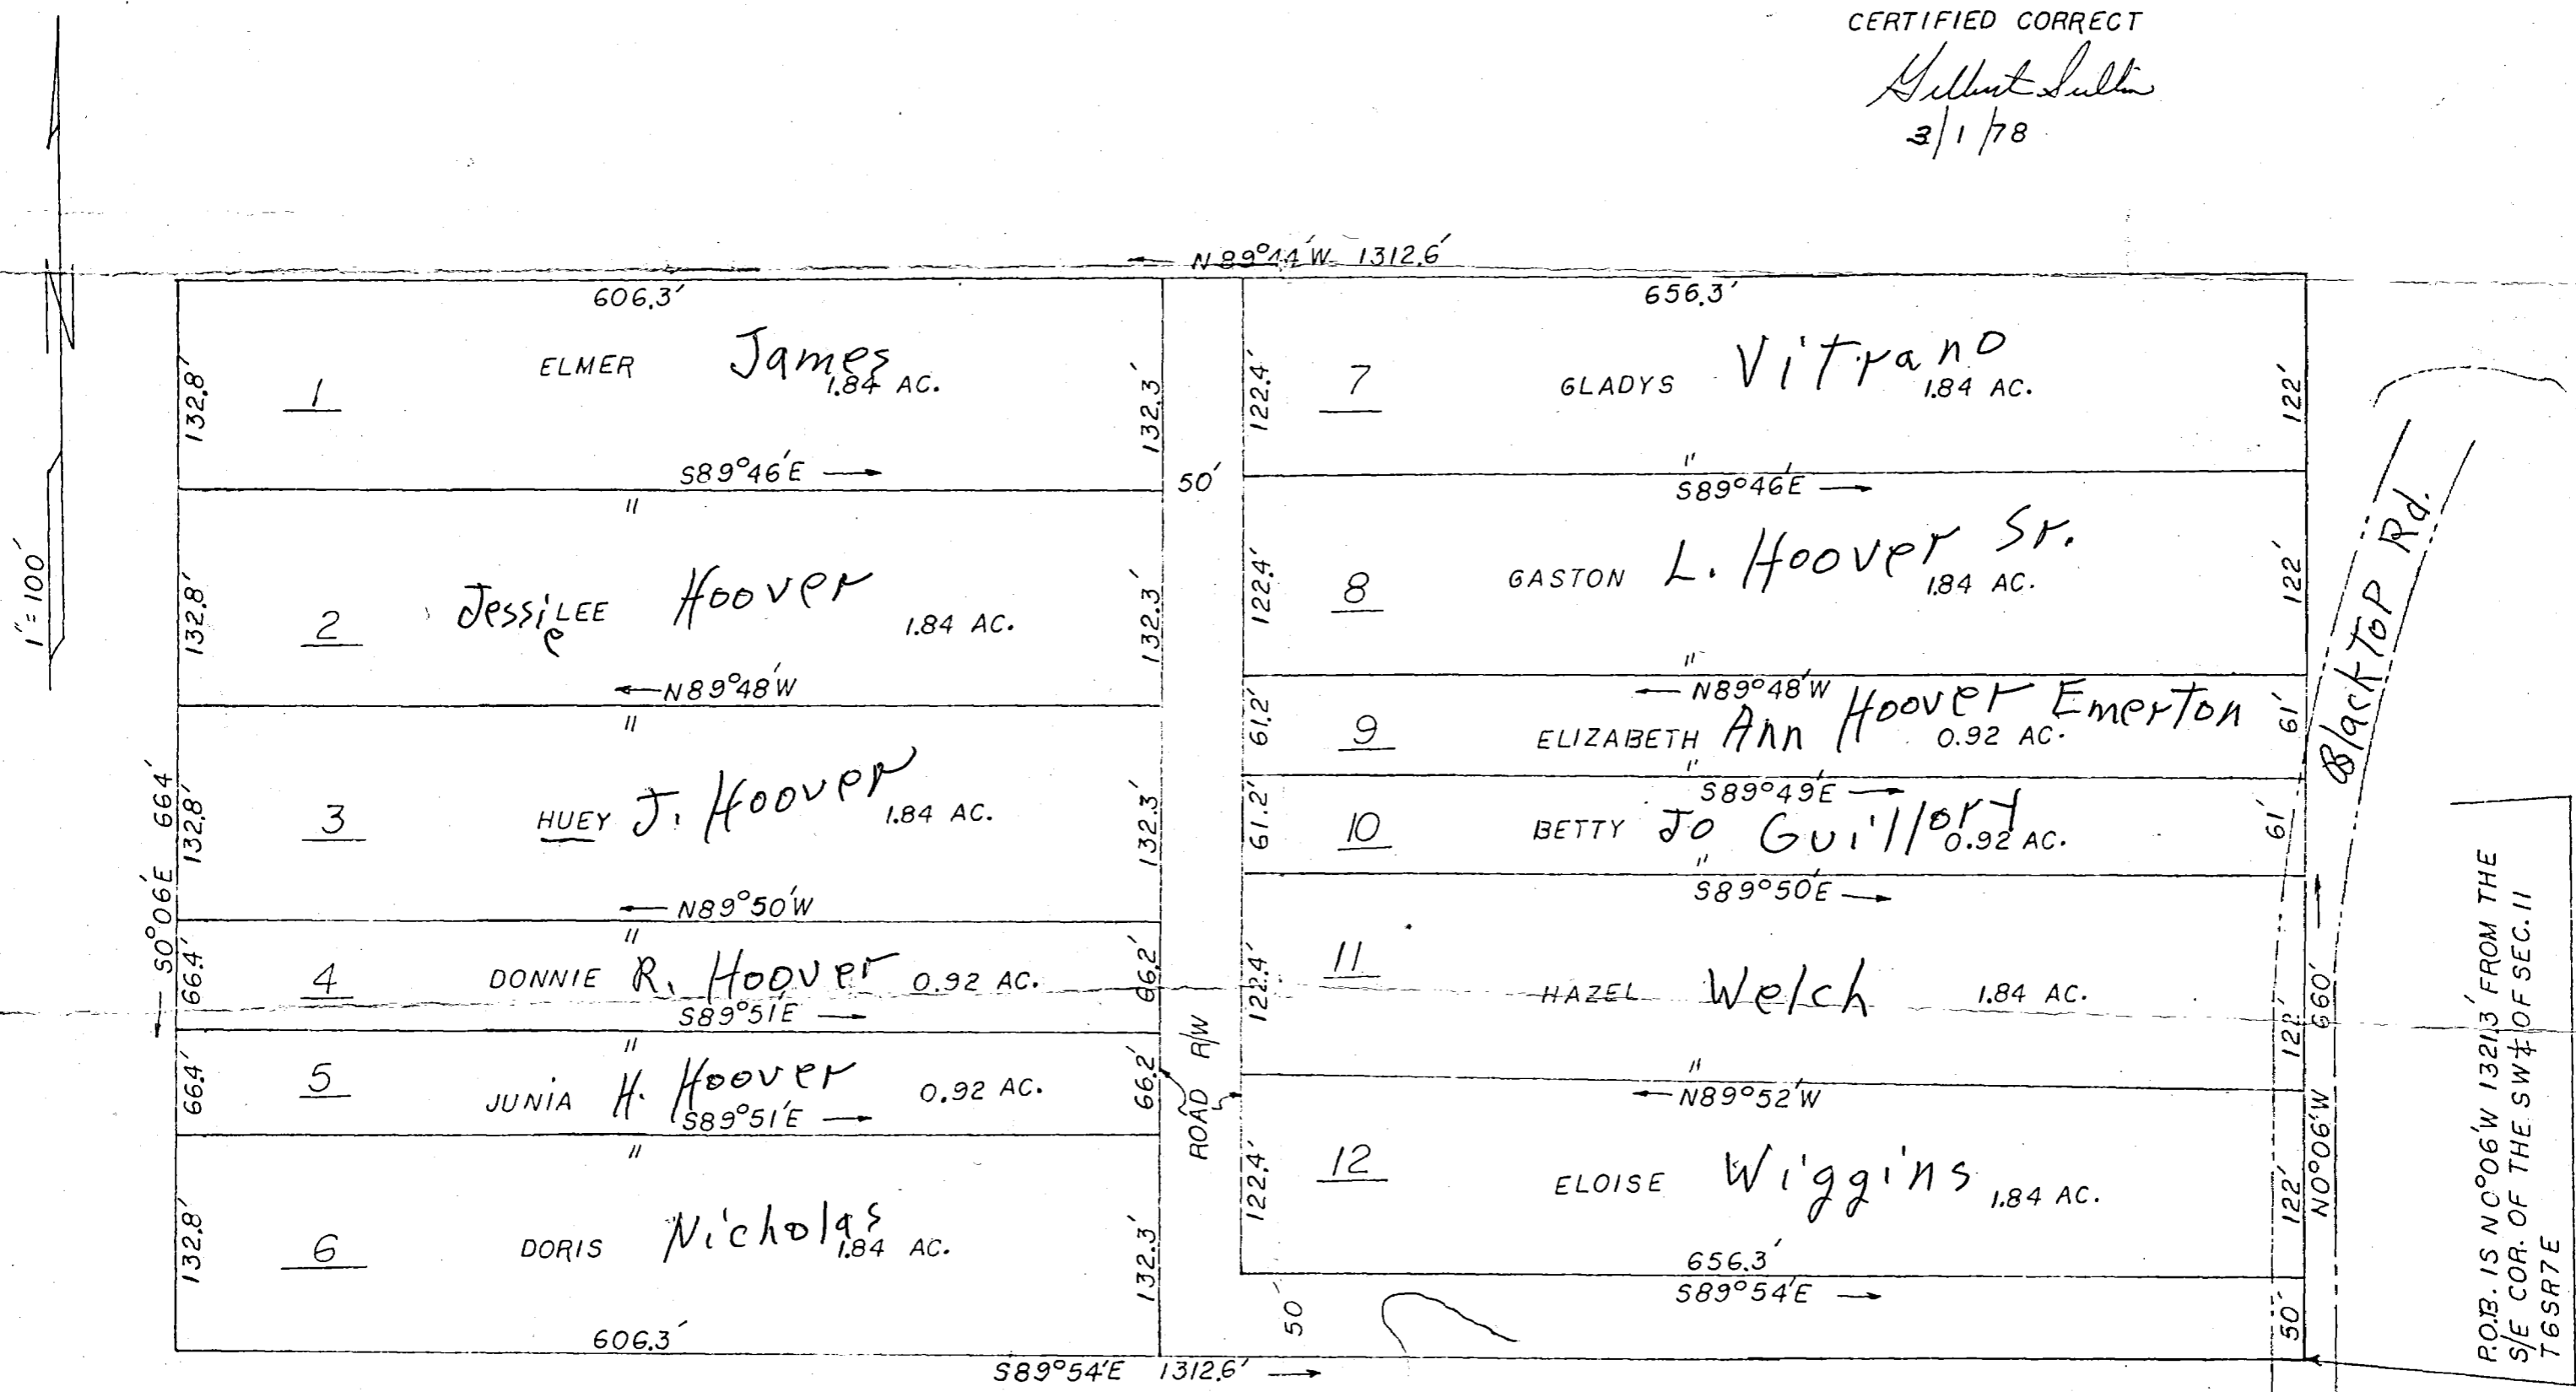 CERTIFIED CORRECT
3/1/78
N89°44'W 1312.6'
606.3'
656.3'
1"=100'
132.8'
1
ELMER James
1.84 AC.
132.3'
S89°46'E
"
132.8'
2
Jessie LEE Hoover
1.84 AC.
132.3'
N89°48'W
"
S0°06'E 664'
132.8'
3
HUEY J. Hoover
1.84 AC.
132.3'
N89°50'W
"
66.4'
4
DONNIE R. Hoover 0.92 AC.
66.2'
S89°51'E
"
66.4'
5
JUNIA H. Hoover 0.92 AC.
66.2'
S89°51'E
"
132.8'
6
DORIS Nicholas
1.84 AC.
132.3'
606.3'
S89°54'E 1312.6'
50'
ROAD R/W
50'
122.4'
7
GLADYS Vitrano
1.84 AC.
122'
"
S89°46'E
122.4'
8
GASTON L. Hoover Sr.
1.84 AC.
122'
"
N89°48'W
61.2'
9
ELIZABETH Ann Hoover Emerton
0.92 AC.
61'
"
S89°49'E
61.2'
10
BETTY Jo Guillory
0.92 AC.
61'
"
S89°50'E
122.4'
11
HAZEL Welch 1.84 AC.
122'
"
N89°52'W
122.4'
12
ELOISE Wiggins 1.84 AC.
122'
656.3'
S89°54'E
50'
N0°06'W 660'
BlackTop Rd.
P.O.B. IS N0°06'W 1321.3' FROM THE
S/E COR. OF THE SW¼ OF SEC. 11
T6SR7E